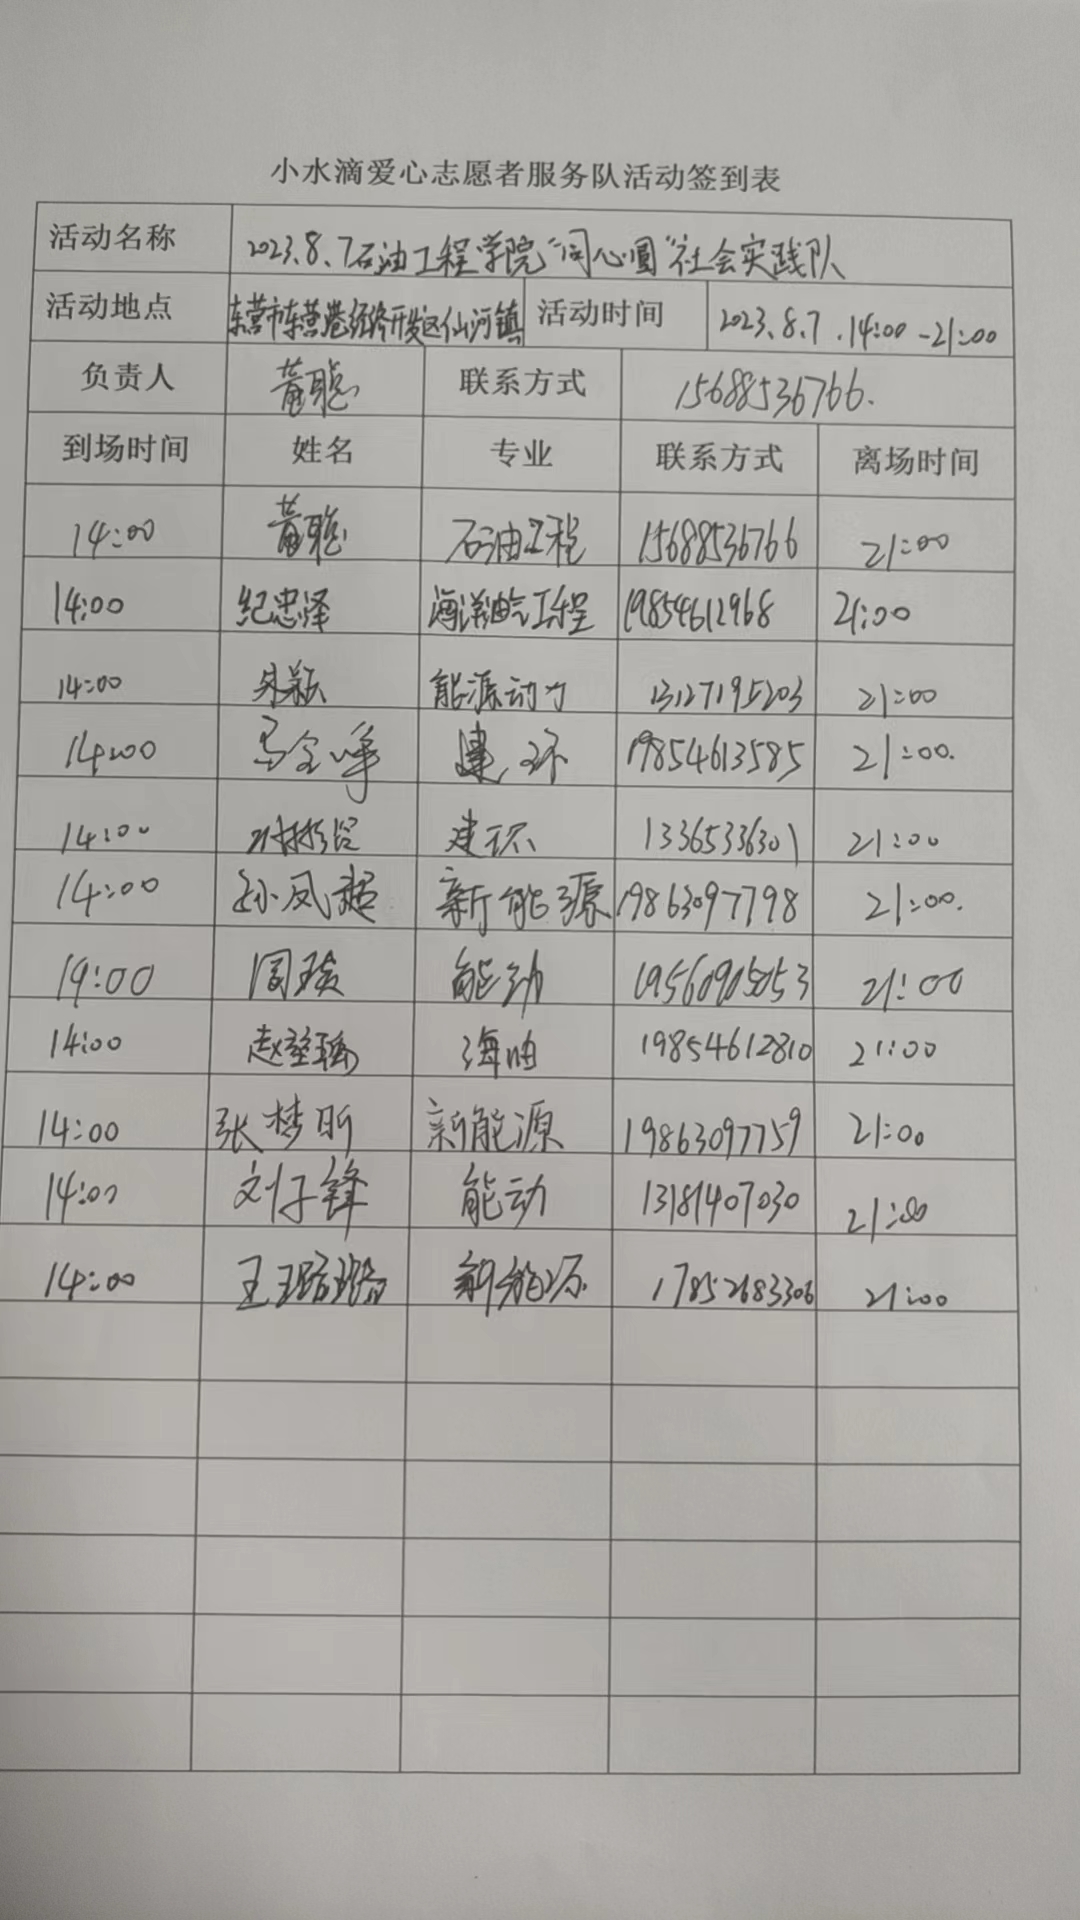 小水滴爱心志愿者服务队活动签到表
活动名称 2023.8.7石油工程学院“同心圆”社会实践队
活动地点 东营市东营港经济开发区仙河镇 活动时间 2023.8.7.14:00-21:00
负责人 黄聪 联系方式 15688536766.
到场时间 姓名 专业 联系方式 离场时间
14:00 黄聪 石油工程 15688536766 21:00
14:00 纪忠泽 海洋油气工程 19854612968 21:00
14:00 能源动力 13127195203 21:00
14:00 马全峰 建环 19854613585 21:00.
14:00 建环 13365336301 21:00
14:00 孙凤超 新能源 19863097798 21:00.
19:00 周琰 能动 19560905053 21:00
14:00 海油 19854612810 21:00
14:00 张梦昕 新能源 19863097759 21:00
14:00 刘子锋 能动 13181407030 21:00
14:00 王璐璐 新能源 17852683306 21:00